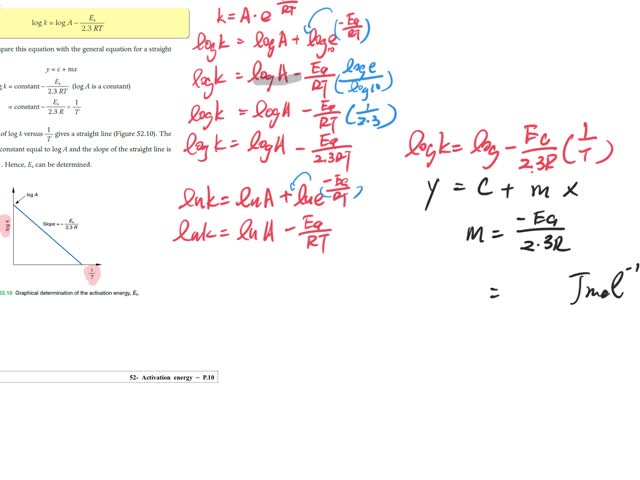 log k = log A − Ea / 2.3 RT
pare this equation with the general equation for a straight
y = c + mx
g k = constant − Ea / 2.3 RT (log A is a constant)
= constant − Ea / 2.3 R × 1/T
of log k versus 1/T gives a straight line (Figure 52.10). The
constant equal to log A and the slope of the straight line is
. Hence, Ea can be determined.
log A
log k
Slope = − Ea / 2.3 R
1/T
52.10 Graphical determination of the activation energy, Ea.
52- Activation energy – P.10
k = A · e RT
log k = log A + log10 e (−Ea/RT)
log k = log A − Ea/RT (log e / log 10)
log k = log A − Ea/RT (1/2.3)
log k = log A − Ea/2.3RT
ln k = ln A + ln e (−Ea/RT)
ln k = ln A − Ea/RT
log k = log − Ea/2.3R (1/T)
y = c + m x
m = −Ea/2.3R
= J mol⁻¹